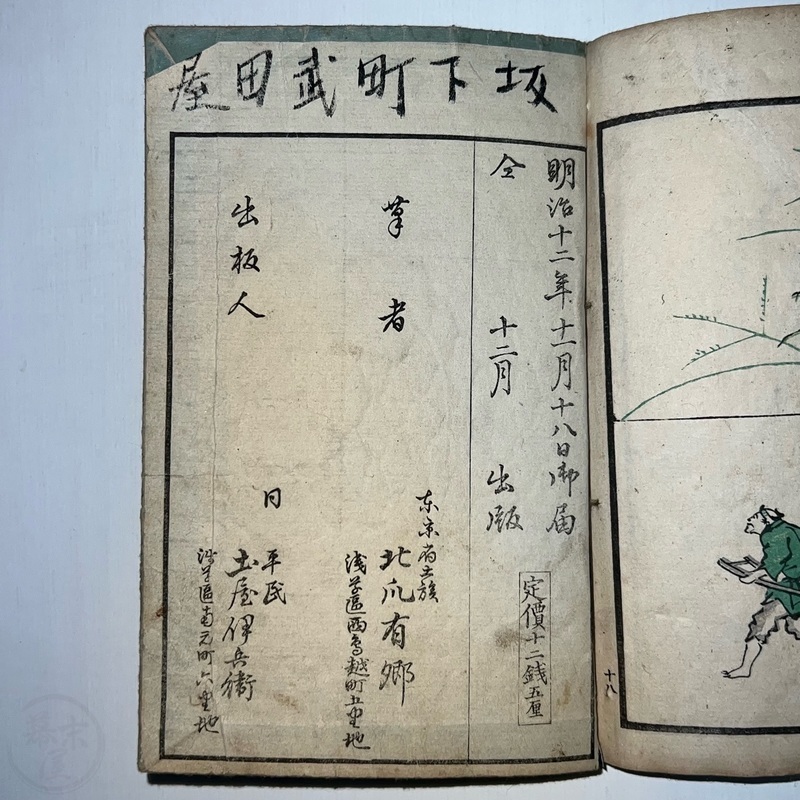 坂下町武田屋
明治十二年十一月十八日御届
仝 十二月 出版
定價十二銭五厘
筆者
東京府士族
北爪有郷
浅草區西鳥越町五番地
出板人
同 平民
土屋伊兵衛
浅草區南元町六番地
十八